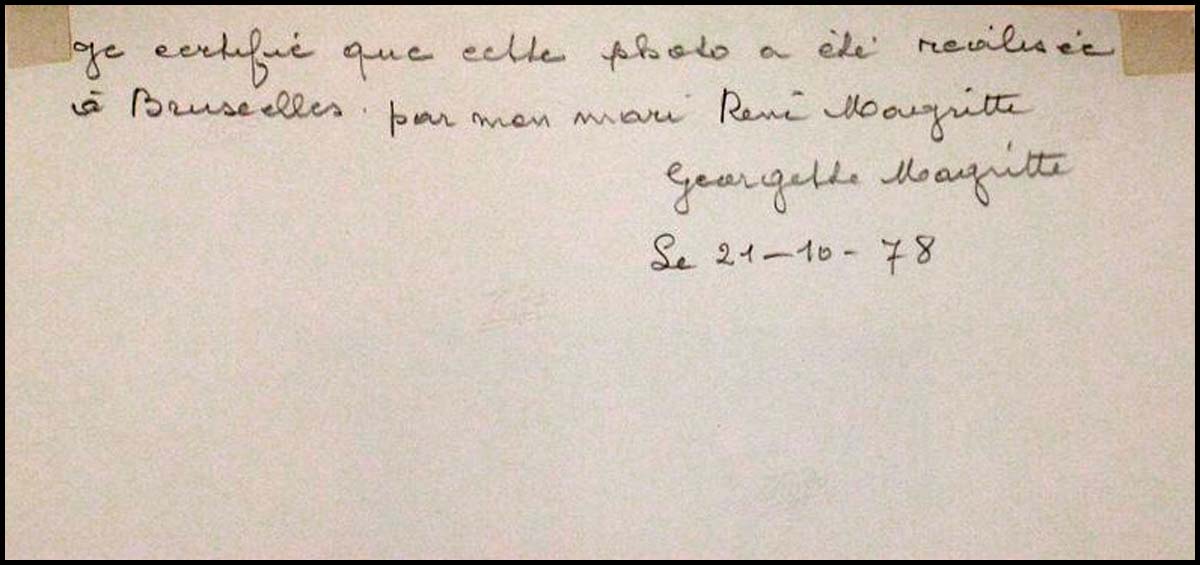 Je certifie que cette photo a été réalisée
à Bruxelles. par mon mari René Magritte
Georgette Magritte
Le 21-10-78